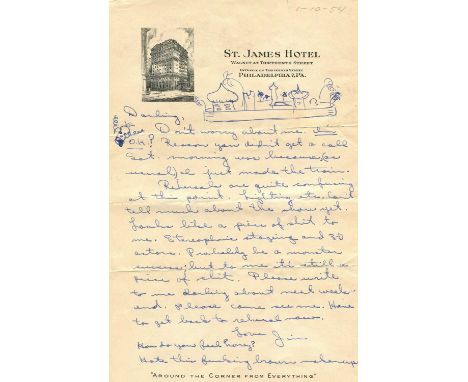 1-10-54
ST. JAMES HOTEL
WALNUT AT THIRTEENTH STREET
ENTRANCE ON THIRTEENTH STREET
PHILADELPHIA 7, PA.
Darling,
Don't worry about me. I'm
O.K.? Reason you didn't get a call
Sat. morning was because (as
usual) I just made the train.
Rehersals are quite confusing
at this point. Lighting etc. Can't
tell much about the show yet.
Looks like a piece of shit to
me. Stereophonic staging and 3D
actors. Probably be a monster
success, but to me it's still a
piece of shit. Please write
to me darling about next week-
end. Please come see me. Have
to get back to rehersal now.
Love Jim
How do you feel honey?
Hate this fucking brown makeup
"AROUND THE CORNER FROM EVERYTHING"